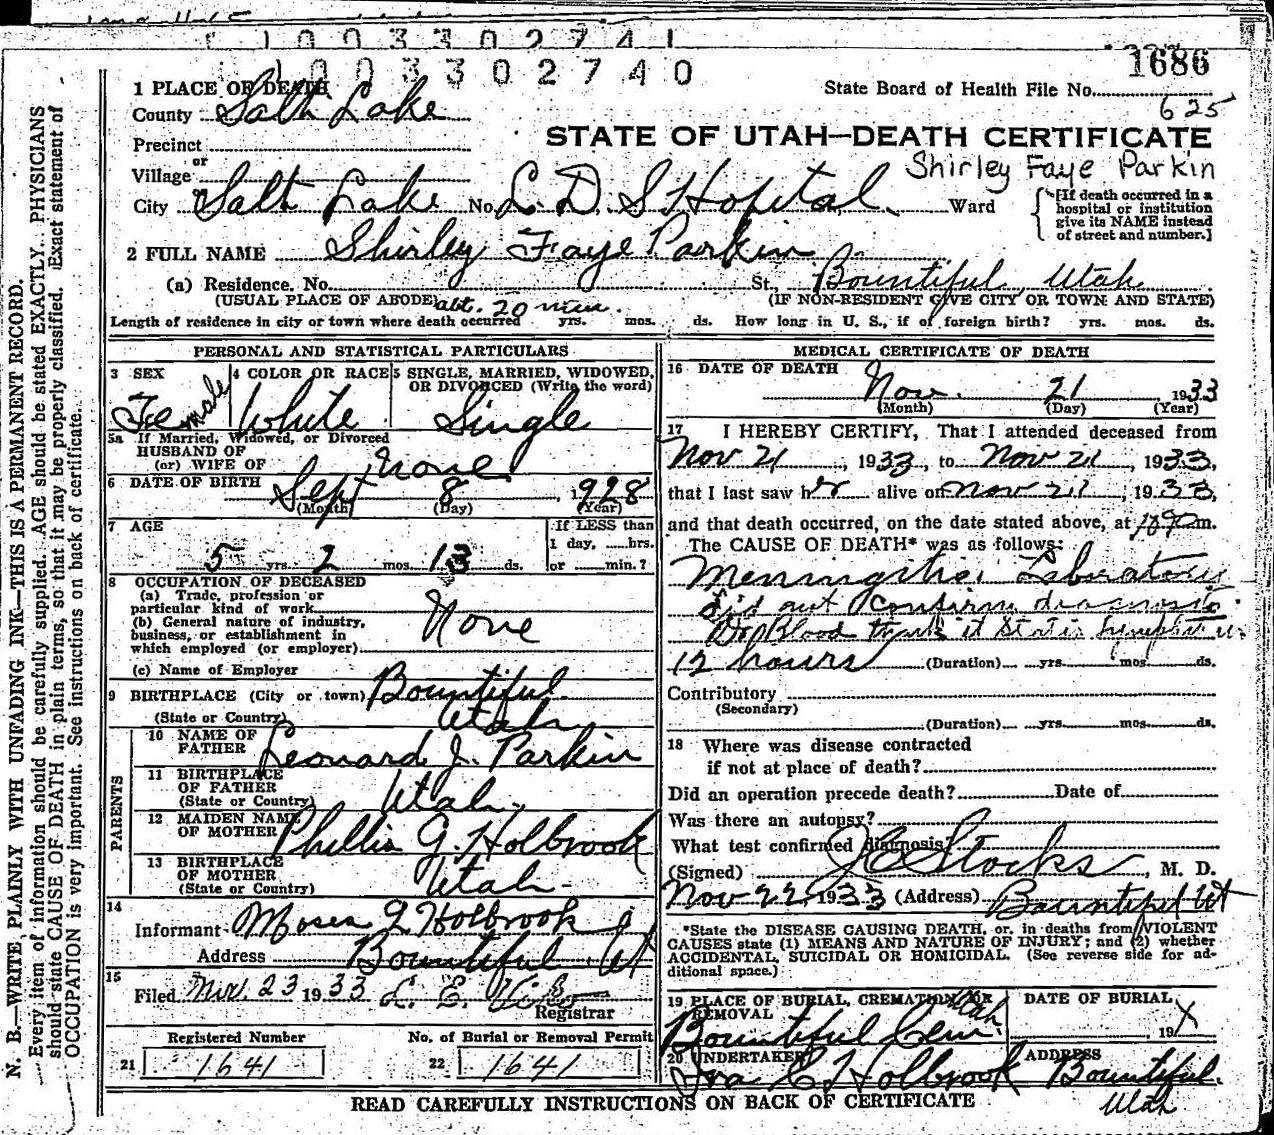 1003302741
1003302740
1686
1 PLACE OF DEATH
State Board of Health File No.
625
County Salt Lake
STATE OF UTAH—DEATH CERTIFICATE
Precinct
or
Village
Shirley Faye Parkin
or
City Salt Lake No. L. D. S Hopital Ward
[If death occurred in a
hospital or institution
give its NAME instead
of street and number.]
2 FULL NAME Shirley Faye Parkin
(a) Residence. No. St., Bountiful, Utah
(USUAL PLACE OF ABODE) (IF NON-RESIDENT GIVE CITY OR TOWN AND STATE)
abt. 20 min.
Length of residence in city or town where death occurred yrs. mos. ds. How long in U. S., if of foreign birth? yrs. mos. ds.
PERSONAL AND STATISTICAL PARTICULARS
3 SEX
Female
4 COLOR OR RACE
White
5 SINGLE, MARRIED, WIDOWED,
OR DIVORCED (Write the word)
Single
5a If Married, Widowed, or Divorced
HUSBAND OF
(or) WIFE OF None
6 DATE OF BIRTH Sept 8, 1928
(Month) (Day) (Year)
7 AGE
5 yrs. 2 mos. 13 ds.
If LESS than
1 day, hrs.
or min.?
8 OCCUPATION OF DECEASED
(a) Trade, profession or
particular kind of work
(b) General nature of industry,
business, or establishment in
which employed (or employer)
None
(c) Name of Employer
9 BIRTHPLACE (City or town) Bountiful
(State or Country) Utah
PARENTS
10 NAME OF
FATHER Leonard J. Parkin
11 BIRTHPLACE
OF FATHER
(State or Country) Utah
12 MAIDEN NAME
OF MOTHER Phillis G. Holbrook
13 BIRTHPLACE
OF MOTHER
(State or Country) Utah
14
Informant Moses J Holbrook
Address Bountiful Ut
15
Filed Nov. 23 1933 L. E.
Registrar
Registered Number
21 1641
No. of Burial or Removal Permit
22 1641
MEDICAL CERTIFICATE OF DEATH
16 DATE OF DEATH
Nov. 21 1933
(Month) (Day) (Year)
17 I HEREBY CERTIFY, That I attended deceased from
Nov 21, 1933, to Nov 21, 1933,
that I last saw her alive on Nov 21, 1933,
and that death occurred, on the date stated above, at m.
The CAUSE OF DEATH* was as follows:
Menningitis. Laboratory
did not confirm diagnosis.
Blood
12 hours (Duration) yrs. mos. ds.
Contributory
(Secondary)
(Duration) yrs. mos. ds.
18 Where was disease contracted
if not at place of death?
Did an operation precede death? Date of
Was there an autopsy?
What test confirmed diagnosis?
(Signed) J C Stocks, M. D.
Nov 22 1933 (Address) Bountiful Ut
*State the DISEASE CAUSING DEATH, or, in deaths from VIOLENT
CAUSES state (1) MEANS AND NATURE OF INJURY; and (2) whether
ACCIDENTAL, SUICIDAL OR HOMICIDAL. (See reverse side for ad-
ditional space.)
19 PLACE OF BURIAL, CREMATION, OR
REMOVAL
Utah
Bountiful Cem
DATE OF BURIAL
19 X
20 UNDERTAKER
Ira E Holbrook
ADDRESS
Bountiful.
Utah
READ CAREFULLY INSTRUCTIONS ON BACK OF CERTIFICATE
N. B.—WRITE PLAINLY WITH UNFADING INK—THIS IS A PERMANENT RECORD.
Every item of information should be carefully supplied. AGE should be stated EXACTLY. PHYSICIANS
should state CAUSE OF DEATH in plain terms, so that it may be properly classified. Exact statement of
OCCUPATION is very important. See instructions on back of certificate.